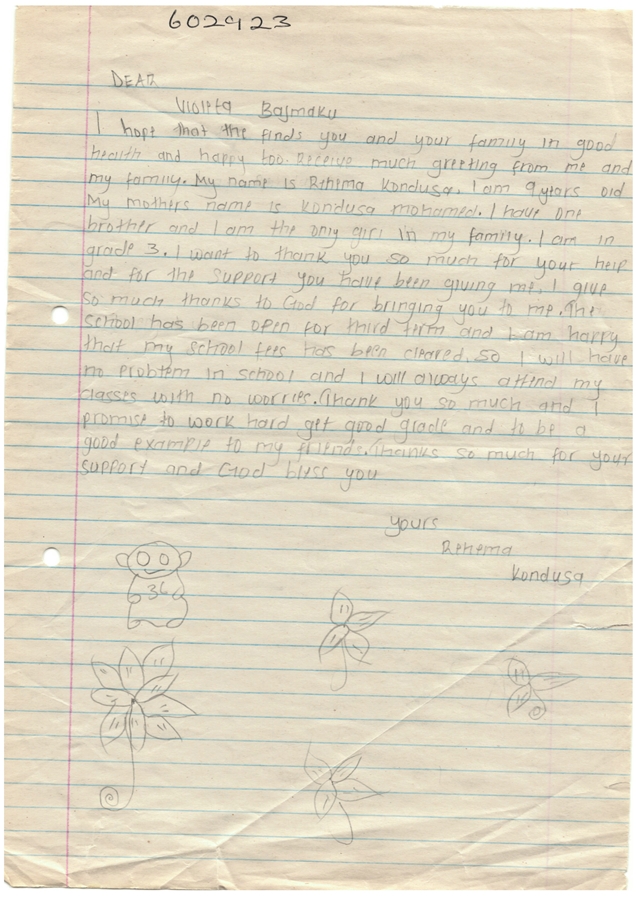 602923
DEAR
Violeta Bajmaku
I hope that the finds you and your family in good
health and happy too. Receive much greeting from me and
my family. My name is Rehema Kondusa. I am 9 years old
My mothers name is Kondusa mohamed. I have one
brother and I am the only girl in my family. I am in
grade 3. I want to thank you so much for your help
and for the support you have been giving me. I give
so much thanks to God for bringing you to me. The
school has been open for third term and I am happy
that my school fees has been cleared. so I will have
no problem in school and I will always attend my
classes with no worries. Thank you so much and I
promise to work hard get good grade and to be a
good example to my friends. Thanks so much for your
support and God bless you
yours
Rehema
Kondusa